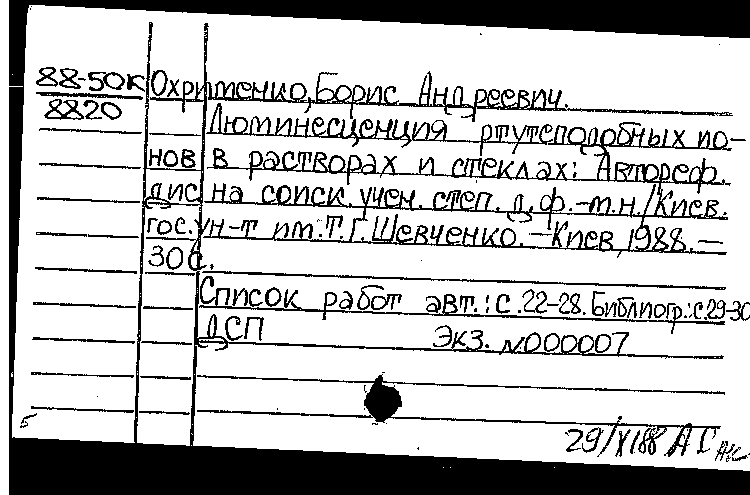 88-50К Охрименко, Борис Андреевич.
8820
Люминесценция ртутеподобных ио-
нов в растворах и стеклах: Автореф.
дис на соиск. учен. степ. д.ф.-м.н./Киев.
гос. ун-т им. Т.Г. Шевченко. – Киев, 1988. –
30 с.
Список работ авт.: с. 22-28. Библиогр.: с. 29-30
ДСП Экз. №000007
5
29/XI88